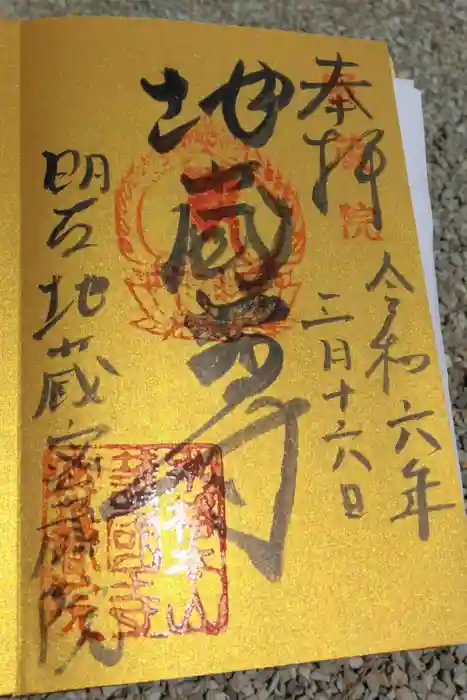 奉拝
令和六年
三月十六日
地蔵尊
明石地蔵密蔵院